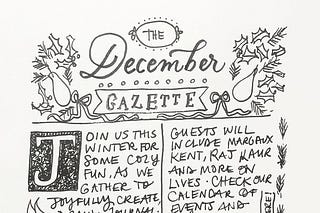 THE
December
GAZETTE
JOIN US THIS
WINTER FOR
SOME COZY
FUN, AS WE
GATHER TO
JOYFULLY CREATE,
GUESTS WILL
INCLUDE MARGAUX
KENT, RAJ KAUR
AND MORE ON
LIVES · CHECK OUR
CALENDAR OF
EVENTS AND